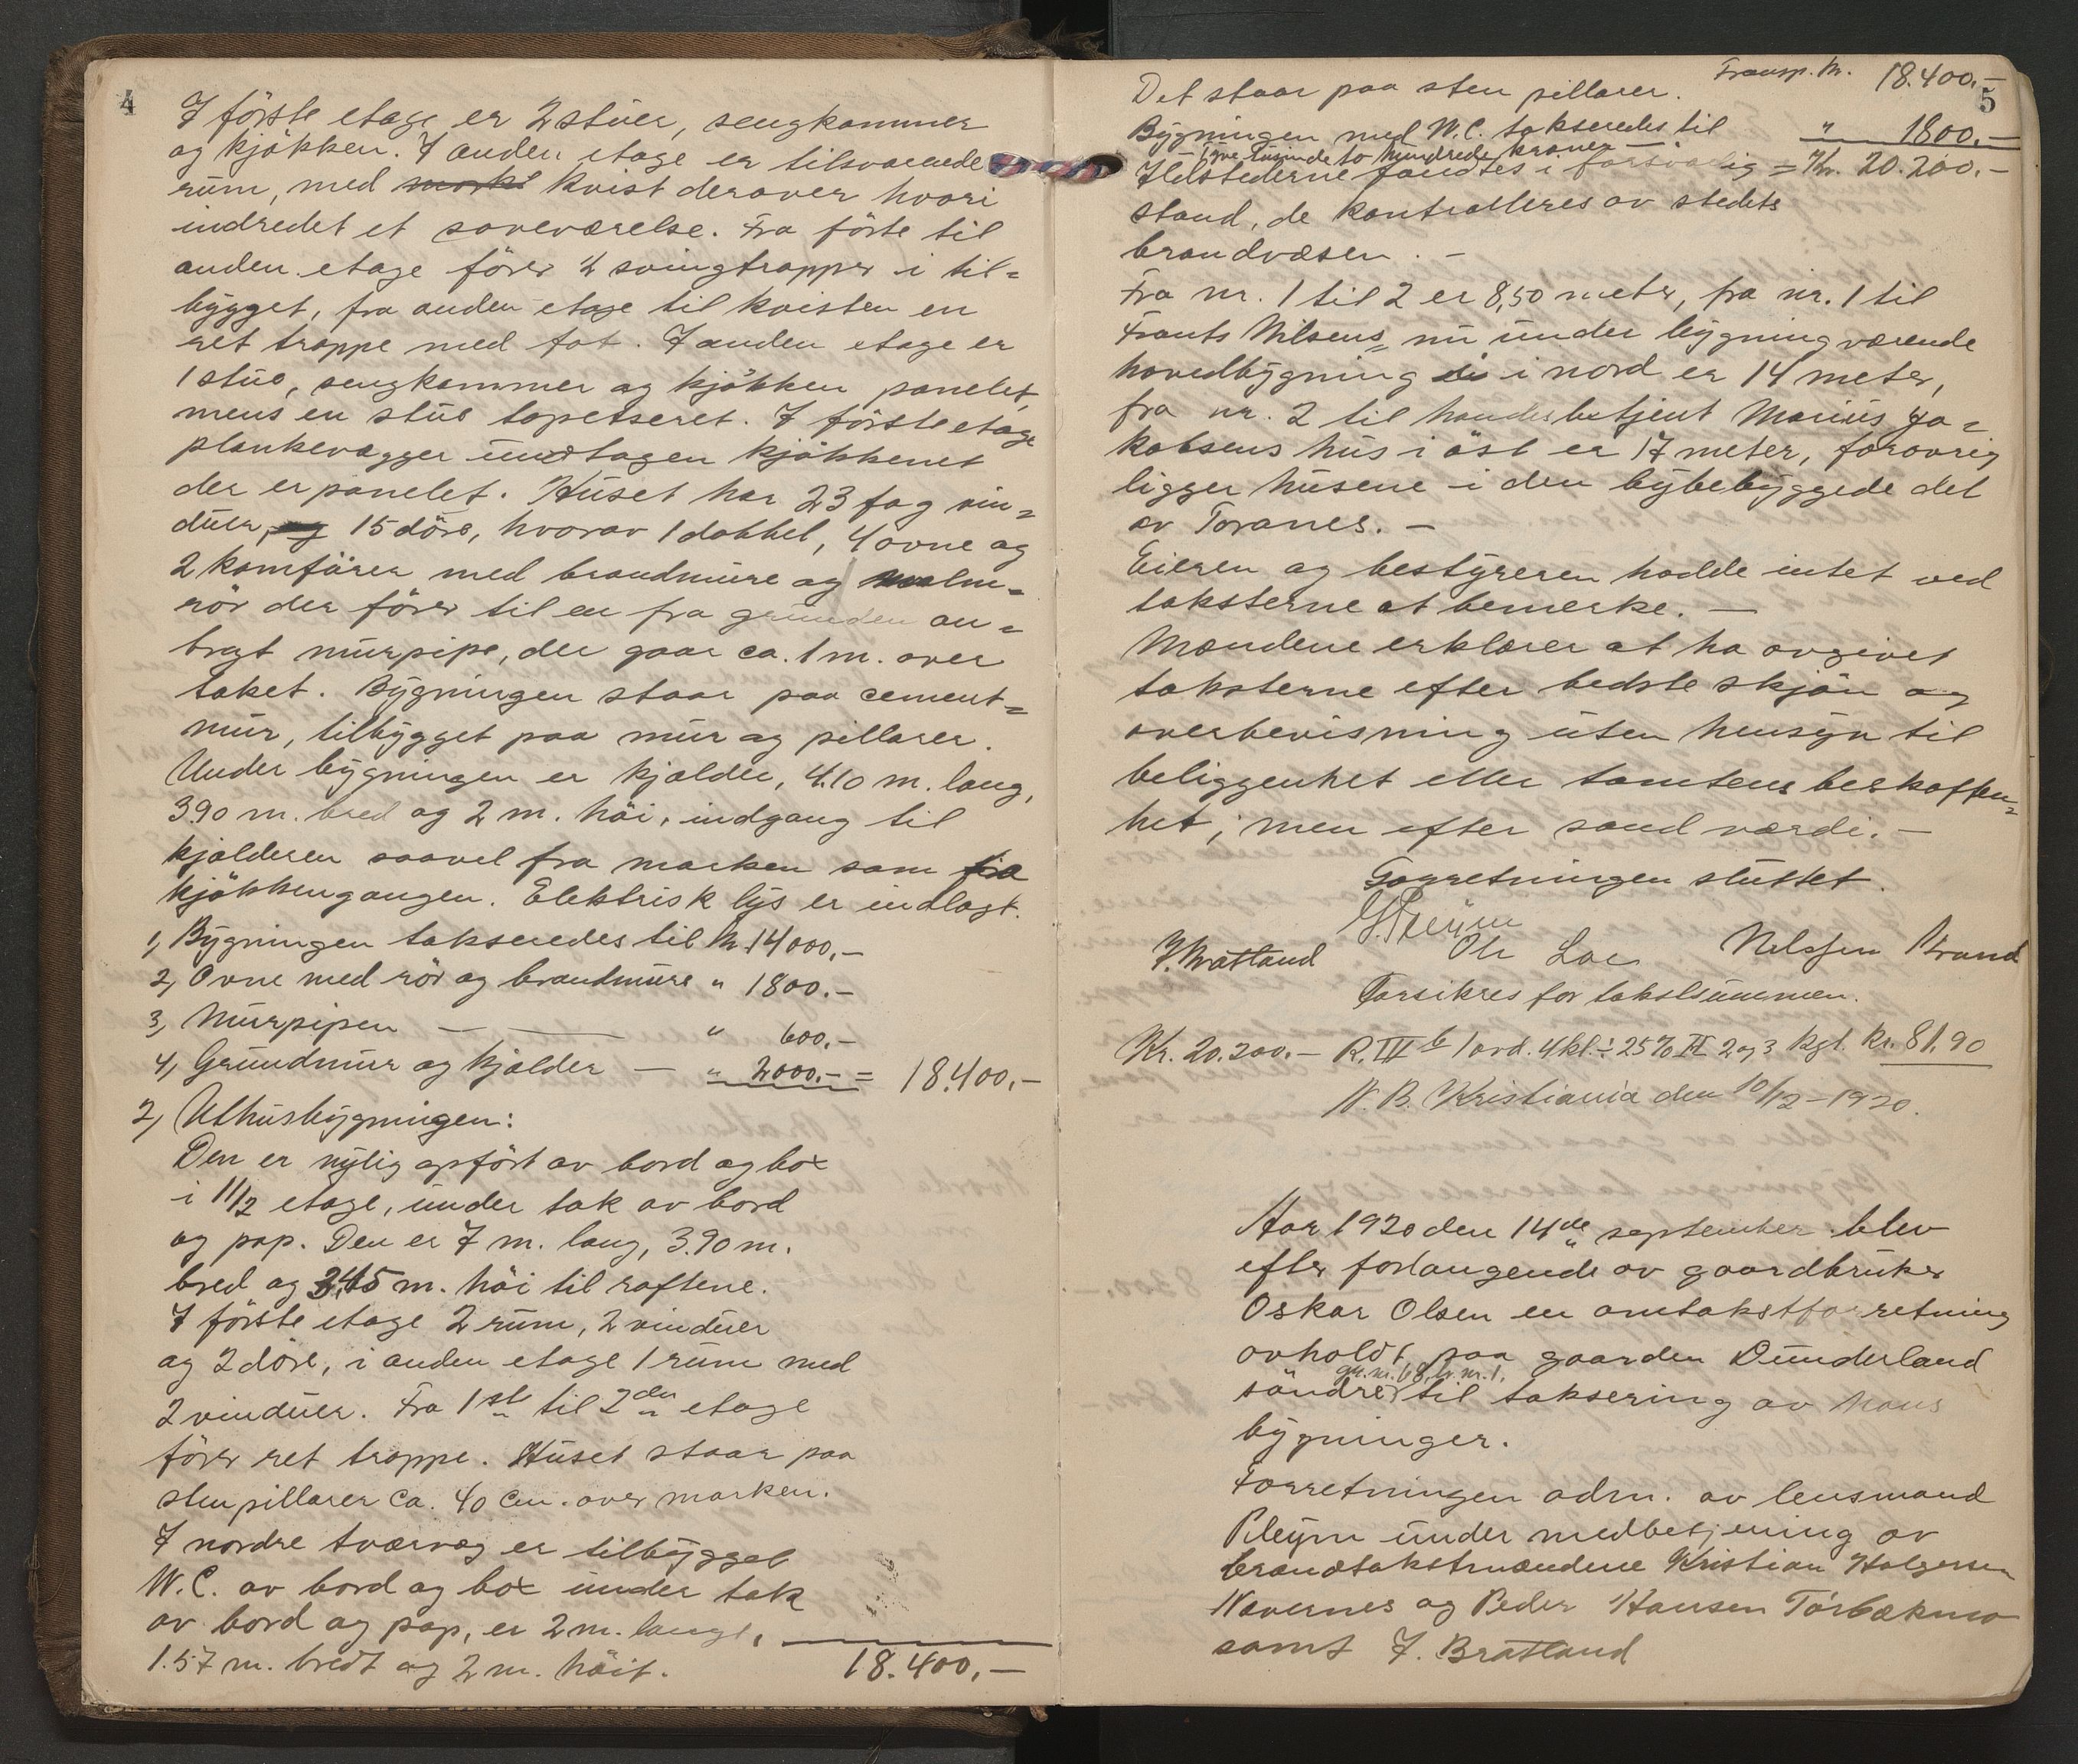 4
I förste etage er 2 stuer, sengkammer
og kjökken. I anden etage er tilsvarende
rum, med kvist derover hvori
indredet et soveværelse. Fra förte til
anden etage förer 2 svingtrapper i til=
bygget, fra anden etage til kvisten en
ret trappe med fot. I anden etage er
1 stue, sengkammer og kjökken panelet,
mens en stue tapetseret. I förste etage
plankevægger undtagen kjökkenet
der er panelet. Huset har 23 fag vin=
duer, 15 döre, hvorav 1 dobbel, 4 ovne og
2 komfürer med brandmure og malm=
rör der förer til en fra grunden an=
bragt murpipe, der gaar ca. 1 m. over
taket. Bygningen staar paa cement=
mur, tilbygget paa mur og pillarer.
Under bygningen er kjælder, 4.10 m. lang,
3.90 m. bred og 2 m. höi, indgang til
kjælderen saavel fra marken som fra
kjökkengangen. Elektrisk lys er indlagt.
1, Bygningen takseredes til kr. 14000,-
2, Ovne med rör og brandmure " 1800.-
3, Murpipen — — " 600.-
4, Grundmur og kjælder — " 2000.- = 18.400,-
2, Uthusbygningen:
Den er nylig opfört av bord og box
i 1 1/2 etage, under tak av bord
og pap. Den er 7 m. lang, 3.90 m.
bred og 3,45 m. höi til raftene.
I förste etage 2 rum, 2 vinduer
og 2 döre, i anden etage 1 rum med
2 vinduer. Fra 1ste til 2den etage
förer ret trappe. Huset staar paa
stenpillarer ca. 40 cm. over marken.
I nordre tværvæg er tilbygget
W.C. av bord og box under tak
av bord og pap, er 2 m. langt,
1.57 m. bredt og 2 m. höit. 18.400,-
5
Transp. kr. 18.400,-
Det staar paa sten pillarer.
Bygningen med W.C. takseredes til " 1800.-
- Tyve tusinde to hundrede kroner -
Ildstederne fandtes i forsvarlig = Kr. 20.200.-
stand, de kontrolleres av stedets
brandvæsen. -
Fra nr. 1 til 2 er 8,50 meter, fra nr. 1 til
Frants Nilsens, nu under bygning værende
hovedbygning i nord er 14 meter,
fra nr. 2 til handelsbetjent Marius Ja=
kobsens hus i öst er 17 meter, forövrig
ligger husene i den bybebyggede del
av Toranes. -
Eieren og bestyreren hadde intet ved
taksterne at bemerke. —
Mændene erklærer at ha avgivet
taksterne efter bedste skjön og
overbevisning uten hensyn til
beliggenhet eller tomtens beskaffen=
het; men efter sand værdi. -
Forretningen sluttet.
J. Bratland Ole Nilssen Brand
Forsikres for takstsummen.
Kr. 20.200.- R. III b 1 ord. 4 kl. ÷ 25% II 2 og 3 kgl. Kr. 81.90
N. B. Kristiania den 10/12-1920.
Aar 1920 den 14de september blev
efter forlangende av gaardbruker
Oskar Olsen en omtakstforretning
avholdt paa gaarden Dunderland
gr. nr. 68, br. nr. 1,
söndre til taksering av hans
bygninger.
Forretningen adm. av lensmand
Pleym under medbetjening av
brandtakstmændene Kristian Holgersen
Nævernes og Peder Hansen Törbækmo
samt J. Bratland